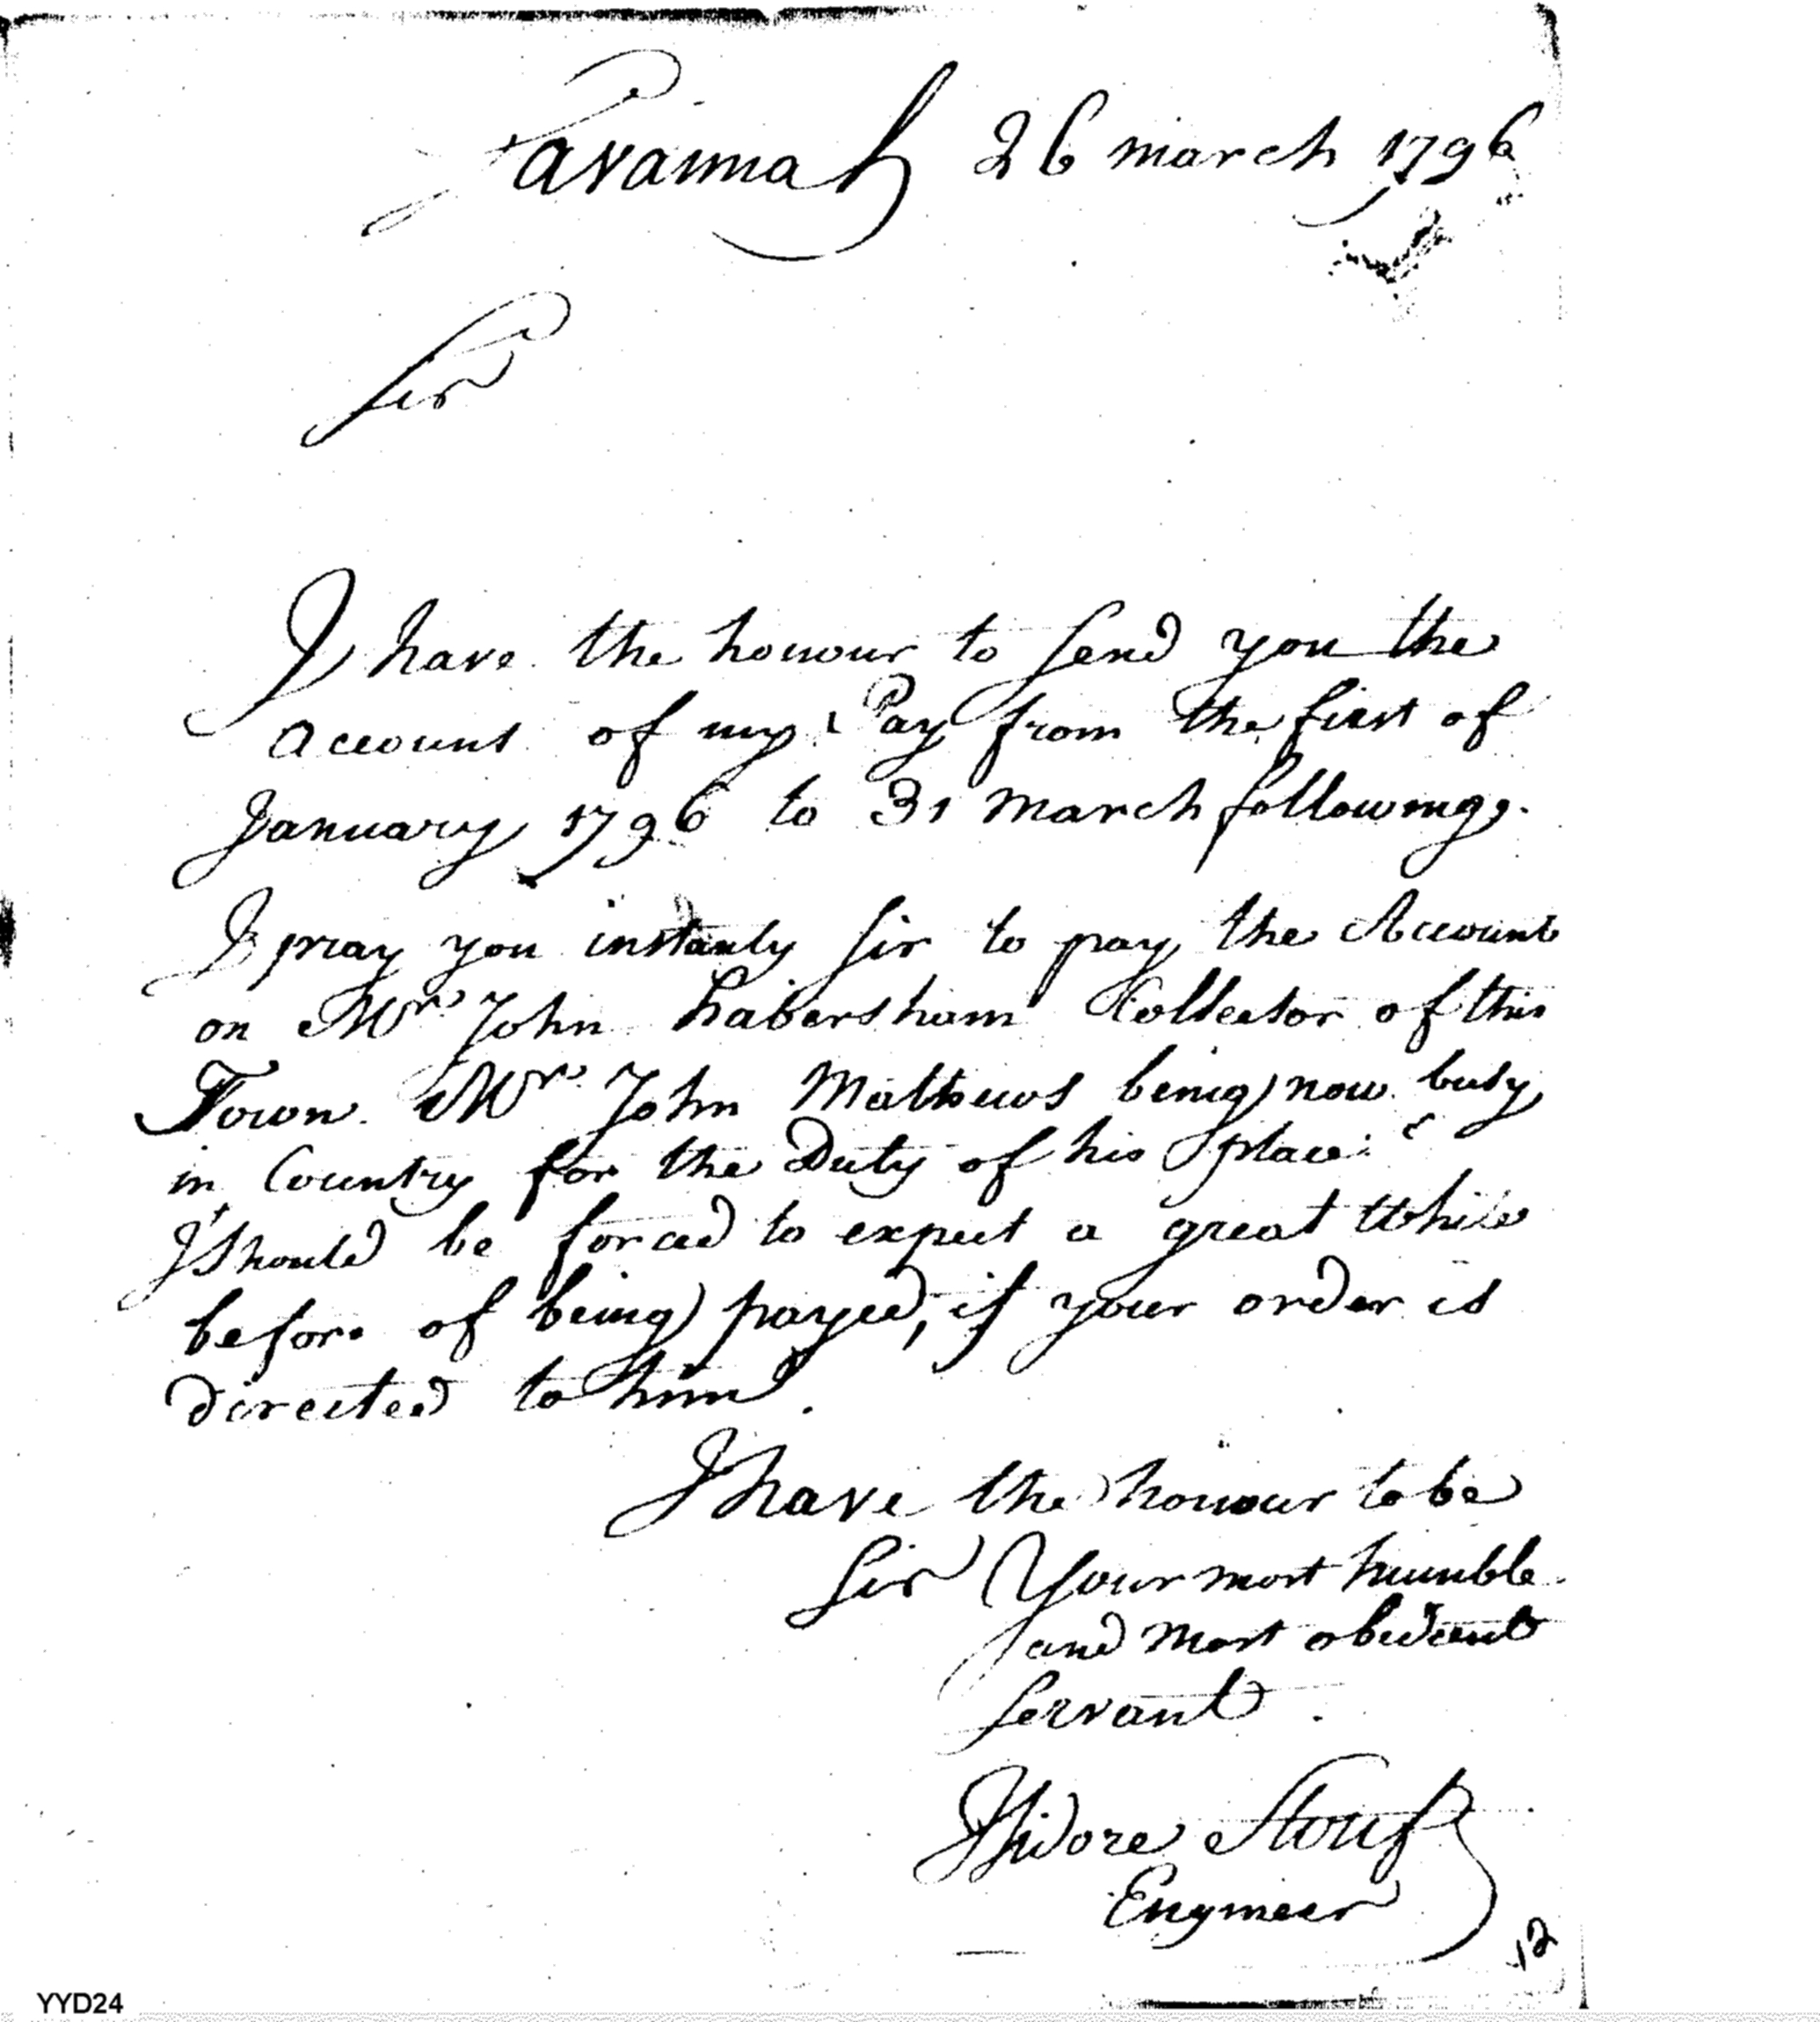 Savannah 26 march 1796
Sir
I have the honour to send you the
account of my Pay from the first of
January 1796 to 31 march following.
I pray you instanly sir to pay the Account
on Mr John habersham Collector of this
Town. Mr John Mathews being now busy
in Country for the Duty of his place.
I should be forced to expect a great While
before of being payed, if your order is
directed to him.
I have the honour to be
Sir Your most humble
and most obedient
servant.
Isidore Stouf
Engineer
12
YYD24